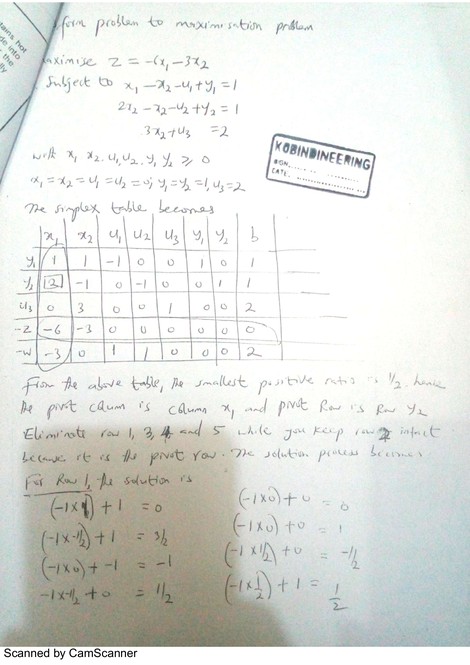 tains hot
de into
the
lly
form problem to maximisation problem
maximise Z = -6x₁ - 3x₂
Subject to x₁ - x₂ - u₁ + y₁ = 1
2x₂ - x₂ - u₂ + y₂ = 1
3x₂ + u₃ = 2
with x₁ x₂, u₁, u₂, y₁ y₂ ≥ 0
x₁ = x₂ = u₁ = u₂ = 0; y₁ = y₂ = 1, u₃ = 2
KOBINDINEERING
SGN.
DATE.
The simplex table becomes
x₁ x₂ u₁ u₂ u₃ y₁ y₂ b
y₁ 1 1 -1 0 0 1 0 1
y₂ 2 -1 0 -1 0 0 1 1
u₃ 0 3 0 0 1 0 0 2
-Z -6 -3 0 0 0 0 0 0
-W -3 0 1 1 0 0 0 2
From the above table, the smallest positive ratio is 1/2, hence
the pivot column is column x₁ and pivot Row is Row y₂
Eliminate row 1, 3, 4 and 5 while you keep row 2 intact
because it is the pivot row. The solution process becomes
For Row 1, the solution is
(-1×1) + 1 = 0
(-1×-1/2) + 1 = 3/2
(-1×0) + -1 = -1
-1×-1/2 + 0 = 1/2
(-1×0) + 0 = 0
(-1×0) + 0 = 1
(-1×1/2) + 0 = -1/2
(-1×1/2) + 1 = 1/2
Scanned by CamScanner